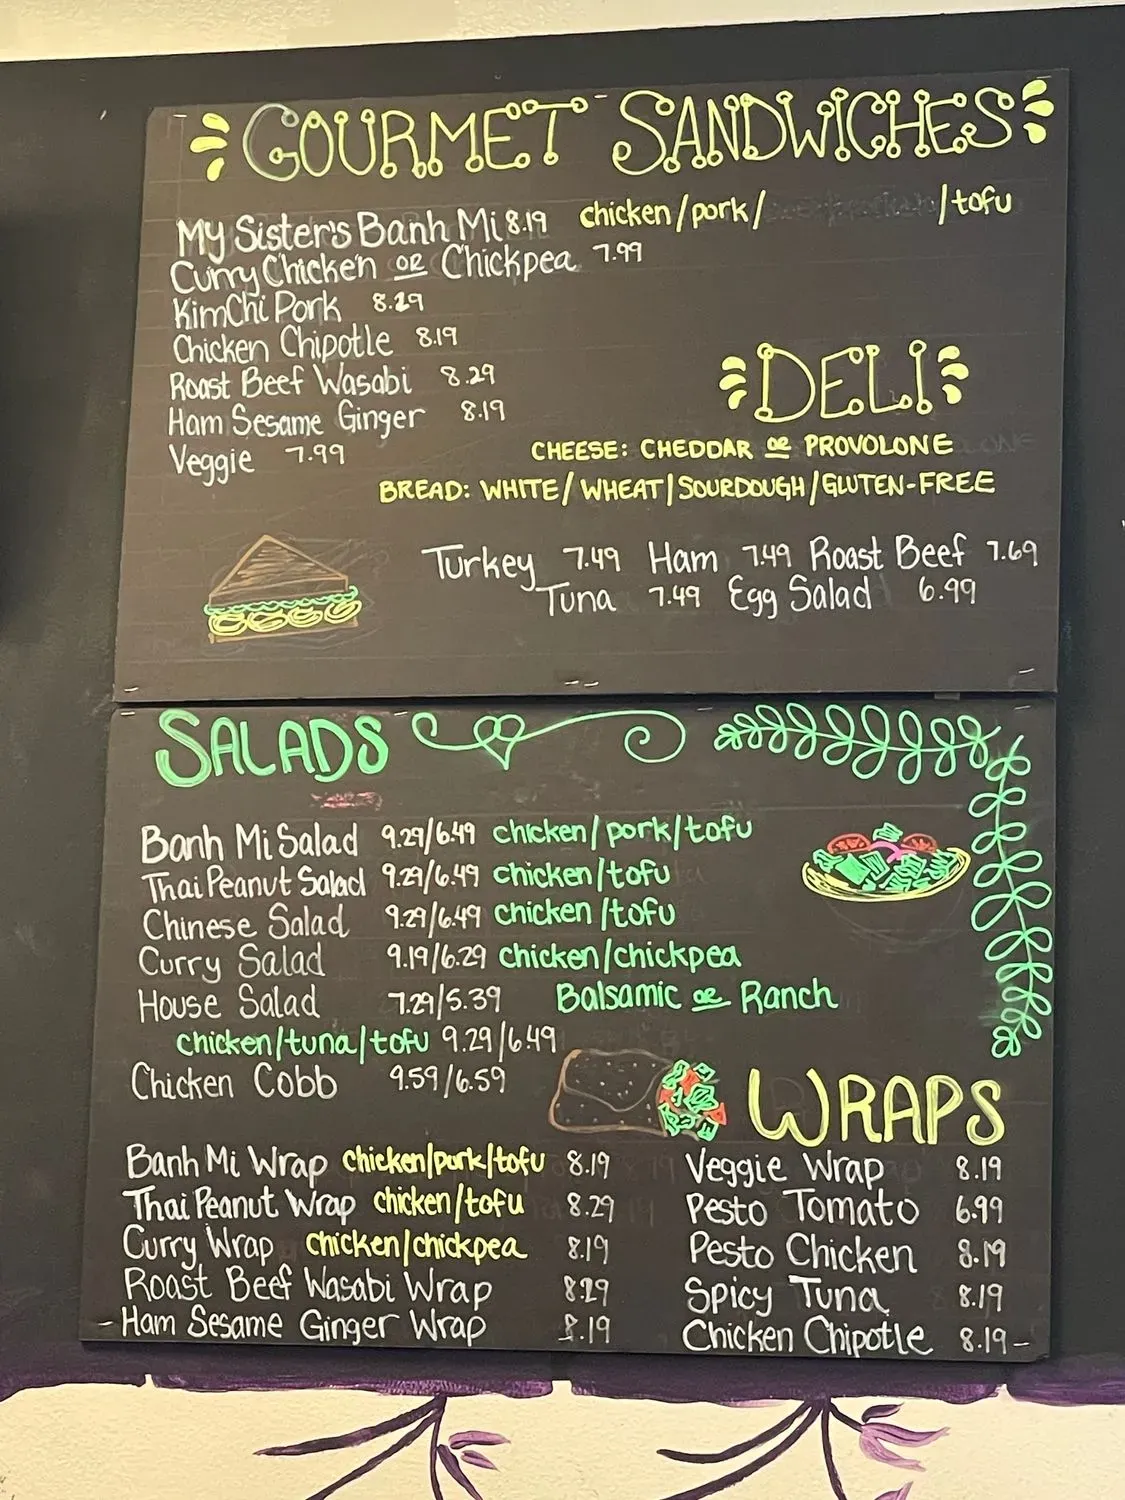 GOURMET SANDWICHES
My Sister's Banh Mi 8.19 chicken/pork/ /tofu
Curry Chicken or Chickpea 7.99
KimChi Pork 8.29
Chicken Chipotle 8.19
Roast Beef Wasabi 8.29
Ham Sesame Ginger 8.19
Veggie 7.99
DELI
CHEESE: CHEDDAR or PROVOLONE
BREAD: WHITE/WHEAT|SOURDOUGH/GLUTEN-FREE
Turkey 7.49 Ham 7.49 Roast Beef 7.69
Tuna 7.49 Egg Salad 6.99
SALADS
Banh Mi Salad 9.29/6.49 chicken/pork/tofu
Thai Peanut Salad 9.29/6.49 chicken/tofu
Chinese Salad 9.29/6.49 chicken/tofu
Curry Salad 9.19/6.29 chicken/chickpea
House Salad 7.29/5.39 Balsamic or Ranch
chicken/tuna/tofu 9.29/6.49
Chicken Cobb 9.59/6.59
WRAPS
Banh Mi Wrap chicken/pork/tofu 8.19
Thai Peanut Wrap chicken/tofu 8.29
Curry Wrap chicken/chickpea 8.19
Roast Beef Wasabi Wrap 8.29
- Ham Sesame Ginger Wrap 8.19
Veggie Wrap 8.19
Pesto Tomato 6.99
Pesto Chicken 8.19
Spicy Tuna 8.19
Chicken Chipotle 8.19 -